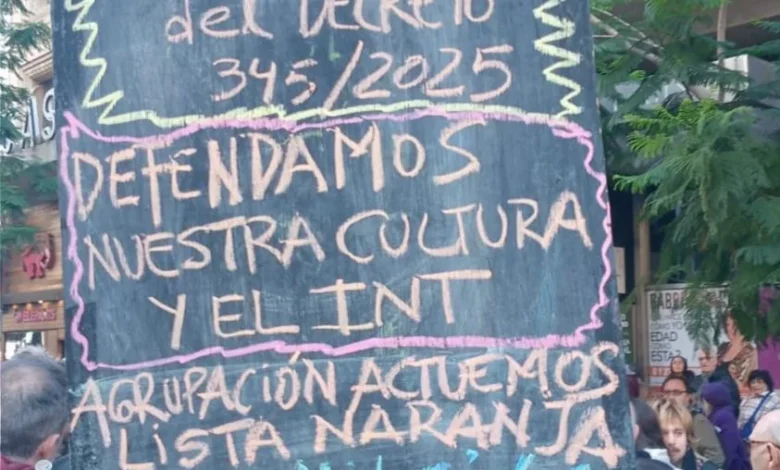 del DECRETO
345/2025
DEFENDAMOS
NUESTRA CULTURA
Y EL INT
AGRUPACIÓN ACTUEMOS
LISTA NARANJA
EDAD
ESTA?